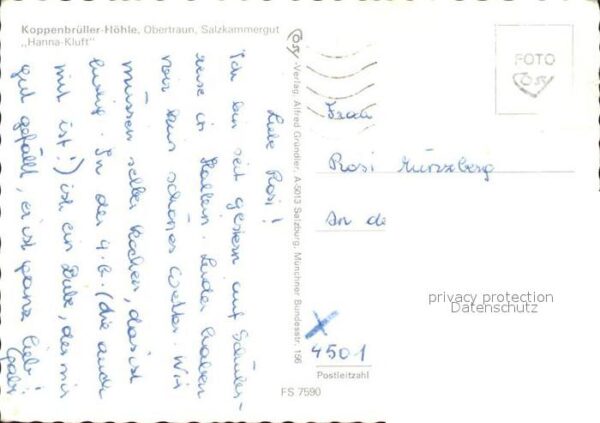 Koppenbrüller-Höhle, Obertraun, Salzkammergut
„Hanna-Kluft"
Liebe Rosi!
Ich bin seit gestern auf Schüler-
reise in Hallein. Leider haben
wir kein schönes Wetter. Wir
müssen selber kochen, das ist
lustig. In der 4.b. (die auch
mit ist!) ist ein Bube, der mir
gut gefällt, er ist ganz lieb!
Gabi
Cosy-Verlag, Alfred Gründler, A-5013 Salzburg, Münchner Bundesstr. 156
FOTO
Cosy
Frau
Rosi
An de
privacy protection
Datenschutz
4501
Postleitzahl
FS 7590